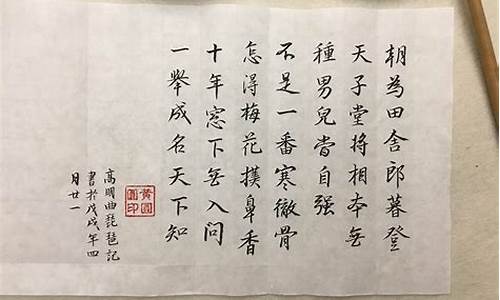 朝為田舍郎暮登
天子堂將相本無
種男兒當自强
不是一番寒徹骨
怎得梅花撲鼻香
十年窓下無人問
一舉成名天下知
高明曲琵琶記
書於戊戌年四
月廿一
黃圓
圓印